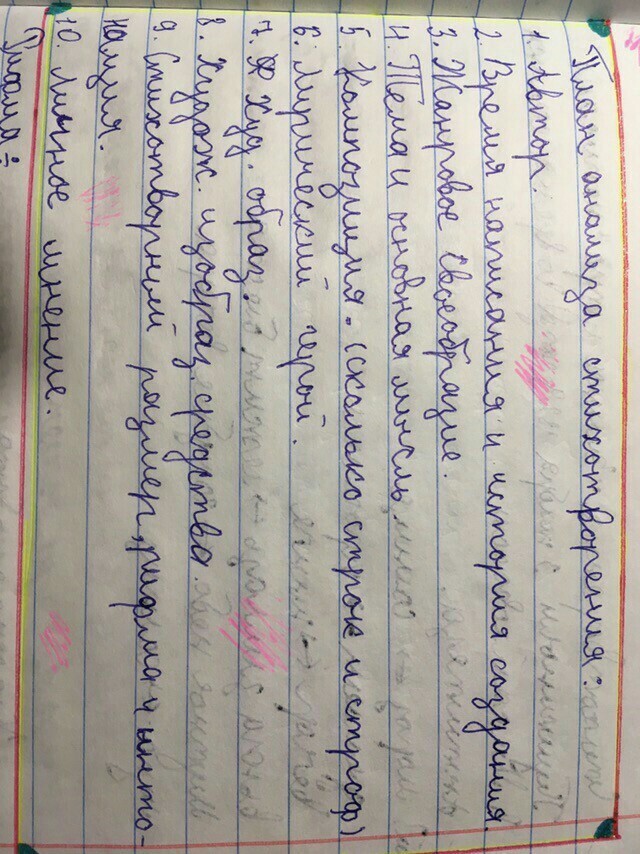 План анализа стихотворения:
1. Автор.
2. Время написания и история создания.
3. Жанровое своеобразие.
4. Тема и основная мысль
5. Композиция. (сколько строк и строф)
6. Лирический герой.
7. Худ. образ.
8. Худож. изобраз. средства.
9. Стихотворный размер, рифма и инто-
нация.
10. Личное мнение.